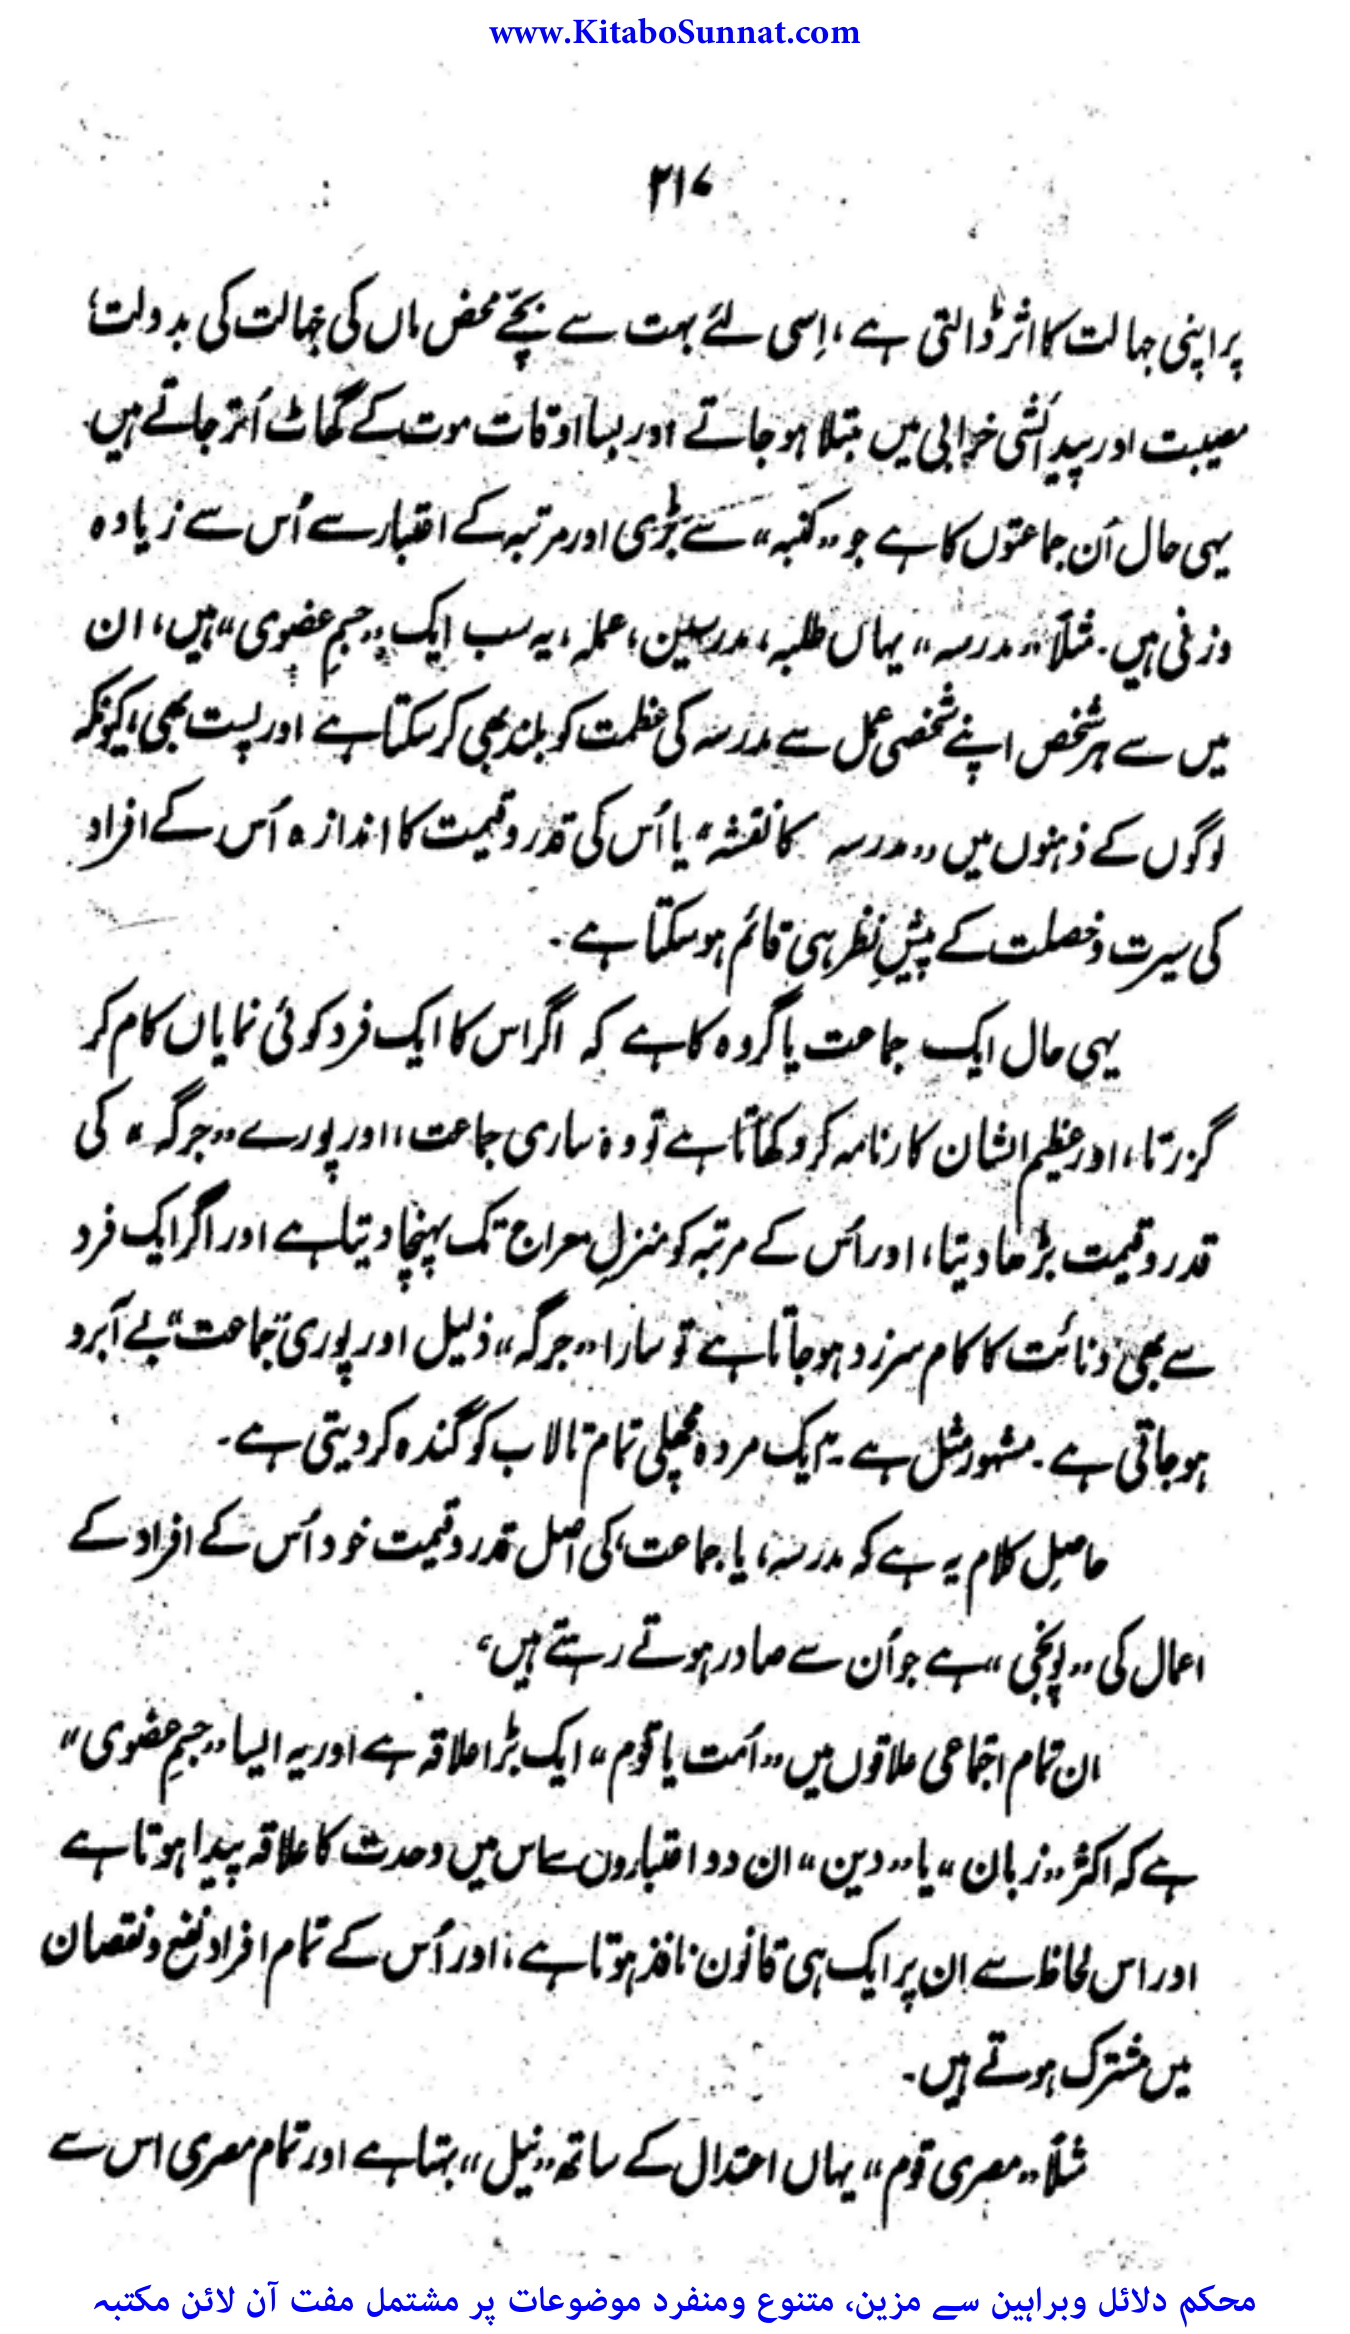 www.KitaboSunnat.com
۲۱۷
پر اپنی جہالت کا اثر ڈالتی ہے، اِسی لئے بہت سے بچّے محض ماں کی جہالت کی بدولت؛
مصیبت اور پیدائشی خرابی میں مبتلا ہو جاتے اور بسا اوقات موت کے گھاٹ اُتر جاتے ہیں۔
یہی حال اُن جماعتوں کا ہے جو „کنبہ“ سے بڑی اور مرتبہ کے اعتبار سے اُس سے زیادہ
وزنی ہیں۔ مثلاً „مدرسہ“ یہاں طلبہ، مدرسین، عملہ، یہ سب ایک „جسمِ عضوی“ ہیں، ان
میں سے ہر شخص اپنے شخصی عمل سے مدرسہ کی عظمت کو بلند بھی کر سکتا ہے اور پست بھی، کیونکہ
لوگوں کے ذہنوں میں „مدرسہ کا نقشہ“ یا اُس کی قدر و قیمت کا اندازہ اُس کے افراد
کی سیرت و خصلت کے پیشِ نظر ہی قائم ہو سکتا ہے۔
یہی حال ایک جماعت یا گروہ کا ہے کہ اگر اس کا ایک فرد کوئی نمایاں کام کر
گزرتا، اور عظیم الشان کارنامہ کر دکھاتا ہے تو وہ ساری جماعت، اور پورے „جرگہ“ کی
قدر و قیمت بڑھا دیتا، اور اُس کے مرتبہ کو منزلِ معراج تک پہنچا دیتا ہے اور اگر ایک فرد
سے بھی دنائت کا کام سرزد ہو جاتا ہے تو سارا „جرگہ“ ذلیل اور پوری „جماعت“ بے آبرو
ہو جاتی ہے۔ مشہور مثل ہے۔ ایک مردہ مچھلی تمام تالاب کو گندہ کر دیتی ہے۔
حاصلِ کلام یہ ہے کہ مدرسہ، یا جماعت، کی اصل قدر و قیمت خود اُس کے افراد کے
اعمال کی „پونجی“ ہے جو اُن سے صادر ہوتے رہتے ہیں،
ان تمام اجتماعی علاقوں میں „اُمت یا قوم“ ایک بڑا علاقہ ہے اور یہ ایسا „جسمِ عضوی“
ہے کہ اکثر „زبان“ یا „دین“ ان دو اعتباروں سے اس میں وحدت کا علاقہ پیدا ہوتا ہے
اور اس لحاظ سے ان پر ایک ہی قانون نافذ ہوتا ہے، اور اُس کے تمام افراد نفع و نقصان
میں مشترک ہوتے ہیں۔
مثلاً „مصری قوم“ یہاں اعتدال کے ساتھ „نیل“ بہتا ہے اور تمام مصری اس سے
محکم دلائل وبراہین سے مزین، متنوع ومنفرد موضوعات پر مشتمل مفت آن لائن مکتبہ